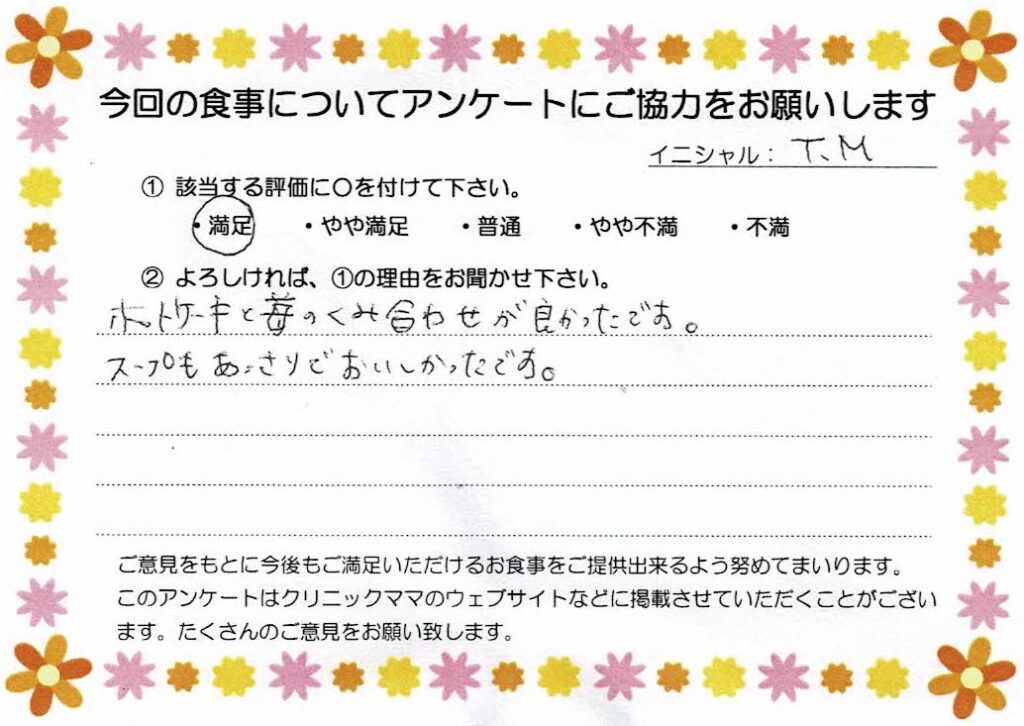 今回の食事についてアンケートにご協力をお願いします
イニシャル： T.M
① 該当する評価に〇を付けて下さい。
・満足 ・やや満足 ・普通 ・やや不満 ・不満
② よろしければ、①の理由をお聞かせ下さい。
ホットケーキと苺のくみ合わせが良かったです。
スープもあっさりでおいしかったです。
ご意見をもとに今後もご満足いただけるお食事をご提供出来るよう努めてまいります。
このアンケートはクリニックママのウェブサイトなどに掲載させていただくことがござい
ます。たくさんのご意見をお願い致します。